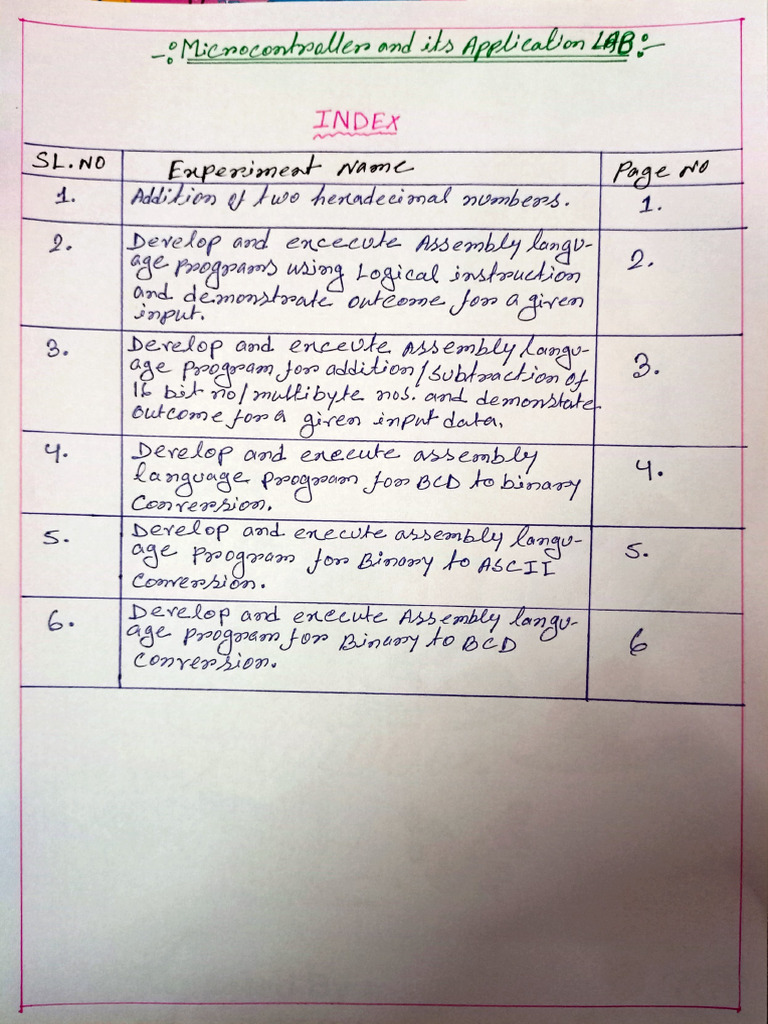 -:Microcontroller and its Application LAB:-
INDEX
SL.NO Experiment Name Page No
1. Addition of two hexadecimal numbers. 1.
2. Develop and excecute Assembly langu- 2.
age programs using Logical instruction
and demonstrate outcome for a given
input.
3. Develop and exceute Assembly langu- 3.
age program for addition/subtraction of
16 bit no/multibyte nos. and demonstate
outcome for a given input data.
4. Develop and execute assembly 4.
language program for BCD to binary
Conversion.
5. Develop and execute assembly langu- 5.
age program for Binary to ASCII
Conversion.
6. Develop and execute Assembly langu- 6
age program for Binary to BCD
Conversion.